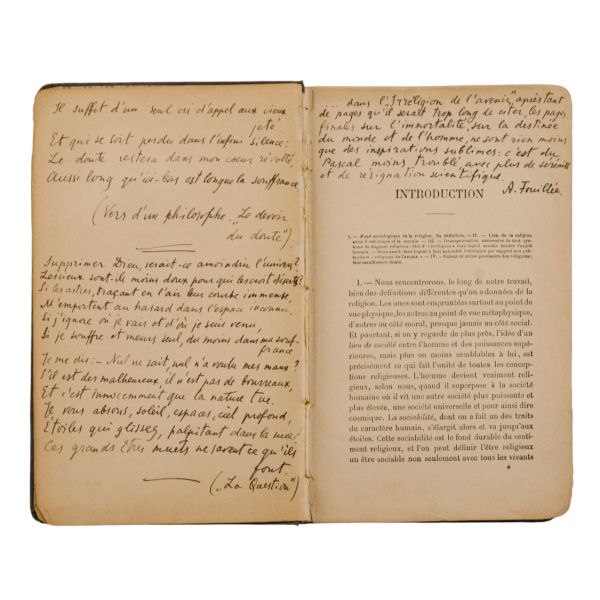 Il suffit d'un seul cri d'appel aux cieux
jeté
Et qui se soit perdu dans l'infini silence:
Le doute restera dans mon cœur révolté,
Aussi long qu'ici-bas est longue la souffrance
(Vers d'un philosophe „Le devoir
du doute")
Supprimer Dieu, serait-ce amoindrir l'univers?
Les cieux sont-ils moins doux pour qui les croit déserts?
Si les astres, traçant en l'air leur courbe immense,
M'emportent au hasard dans l'espace inconnu,
Si j'ignore où je vais et d'où je suis venu,
Si je souffre et meurs seul, du moins dans ma souf-
france
Je me dis: – Nul ne sait, nul n'a voulu mes maux?
S'il est des malheureux, il n'est pas de bourreaux,
Et c'est innocemment que la nature tue.
Je vous absous, soleil, espaces, ciel profond,
Étoiles qui glissez, palpitant dans la nue!
Ces grands êtres muets ne savent ce qu'ils
font.
(„La Question")
... dans l'„Irréligion de l'avenir", après tant
de pages qu'il serait trop long de citer, les pages
finales sur l'immortalité, sur la destinée
du monde et de l'homme, ne sont rien moins
que des inspirations sublimes: c'est du
Pascal moins troublé avec plus de sérénité
et de résignation scientifique.
A. Fouillée
INTRODUCTION
I. — Fond sociologique de la religion. Sa définition. — II. — Lien de la religion
avec l'esthétique et la morale. — III. —
religion de l'avenir. — IV. — Valeur et utilité provisoire des religions;
I. — Nous rencontrerons, le long de notre travail,
bien des définitions différentes qu'on a données de la
religion. Les unes sont empruntées surtout au point de
vue physique, les autres au point de vue métaphysique,
d'autres au côté moral, presque jamais au côté social.
Et pourtant, si on y regarde de plus près, l'idée d'un
lien de société entre l'homme et des puissances supé-
rieures, mais plus ou moins semblables à lui, est
précisément ce qui fait l'unité de toutes les concep-
tions religieuses. L'homme devient vraiment reli-
gieux, selon nous, quand il superpose à la société
humaine où il vit une autre société plus puissante et
plus élevée, une société universelle et pour ainsi dire
cosmique. La sociabilité, dont on a fait un des traits
du caractère humain, s'élargit alors et va jusqu'aux
étoiles. Cette sociabilité est le fond durable du senti-
ment religieux, et l'on peut définir l'être religieux
un être sociable non seulement avec tous les vivants